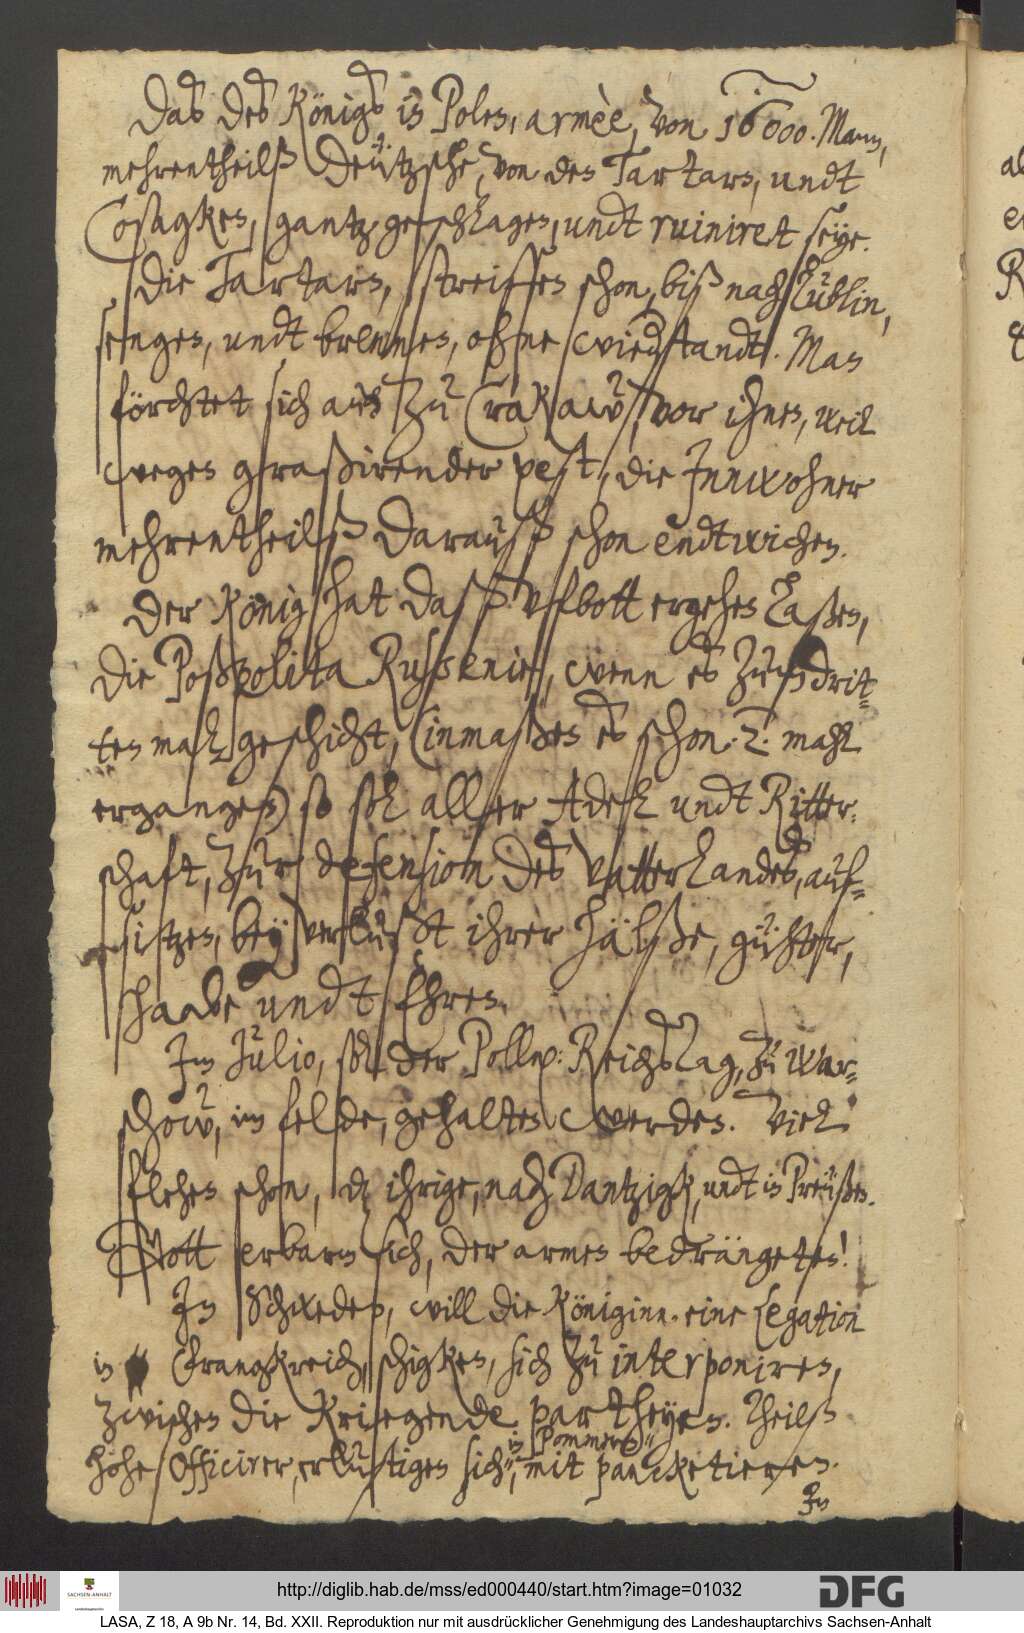 Das des Königs in Polen, armèe, von 16000. Mann,
mehrentheilß Deützsche, von den Tartarn, undt
Cosagken, gantz geschlagen, undt ruiniret seye.
Die Tartarn, streiffen schon, biß nach Lüblin,
sengen, undt brennen, ohne wiederstandt. Man
förchtet sich auch zu Crakaw, vor ihnen, weil
wegen graßirender pest, die Innwohner
mehrentheilß darauß schon endtwichen.
Der König hat daß Uffbott ergehen laßen,
die Poßpolita Russenie, wenn es zum drit-
ten mahl geschicht, (inmaßen es schon .2. mahl
ergangen) so soll aller Adel undt Ritter-
schaft, zur defension des Vatterlandes, auf-
sitzen, bey verlust ihrer Hälße, gühter,
haabe undt Ehren.
Im Julio, soll der Pollnn: Reichstag, zu War-
schow, im felde, gehalten werden. Viel
flehen schon, das ihrige, nach Dantzigk, undt in Preüßen.
Gott erbarm sich, der armen bedrängeten!
In Schweden, will die Königinn eine legation
in Frangkreich, schigken, sich zu interponiren,
zwischen die Kriegende partheyen. Theilß
hohe Officirer, erlustigen sich, in Pommern, mit panckeetieren.
In
http://diglib.hab.de/mss/ed000440/start.htm?image=01032
DFG
SACHSEN-ANHALT
LASA, Z 18, A 9b Nr. 14, Bd. XXII. Reproduktion nur mit ausdrücklicher Genehmigung des Landeshauptarchivs Sachsen-Anhalt